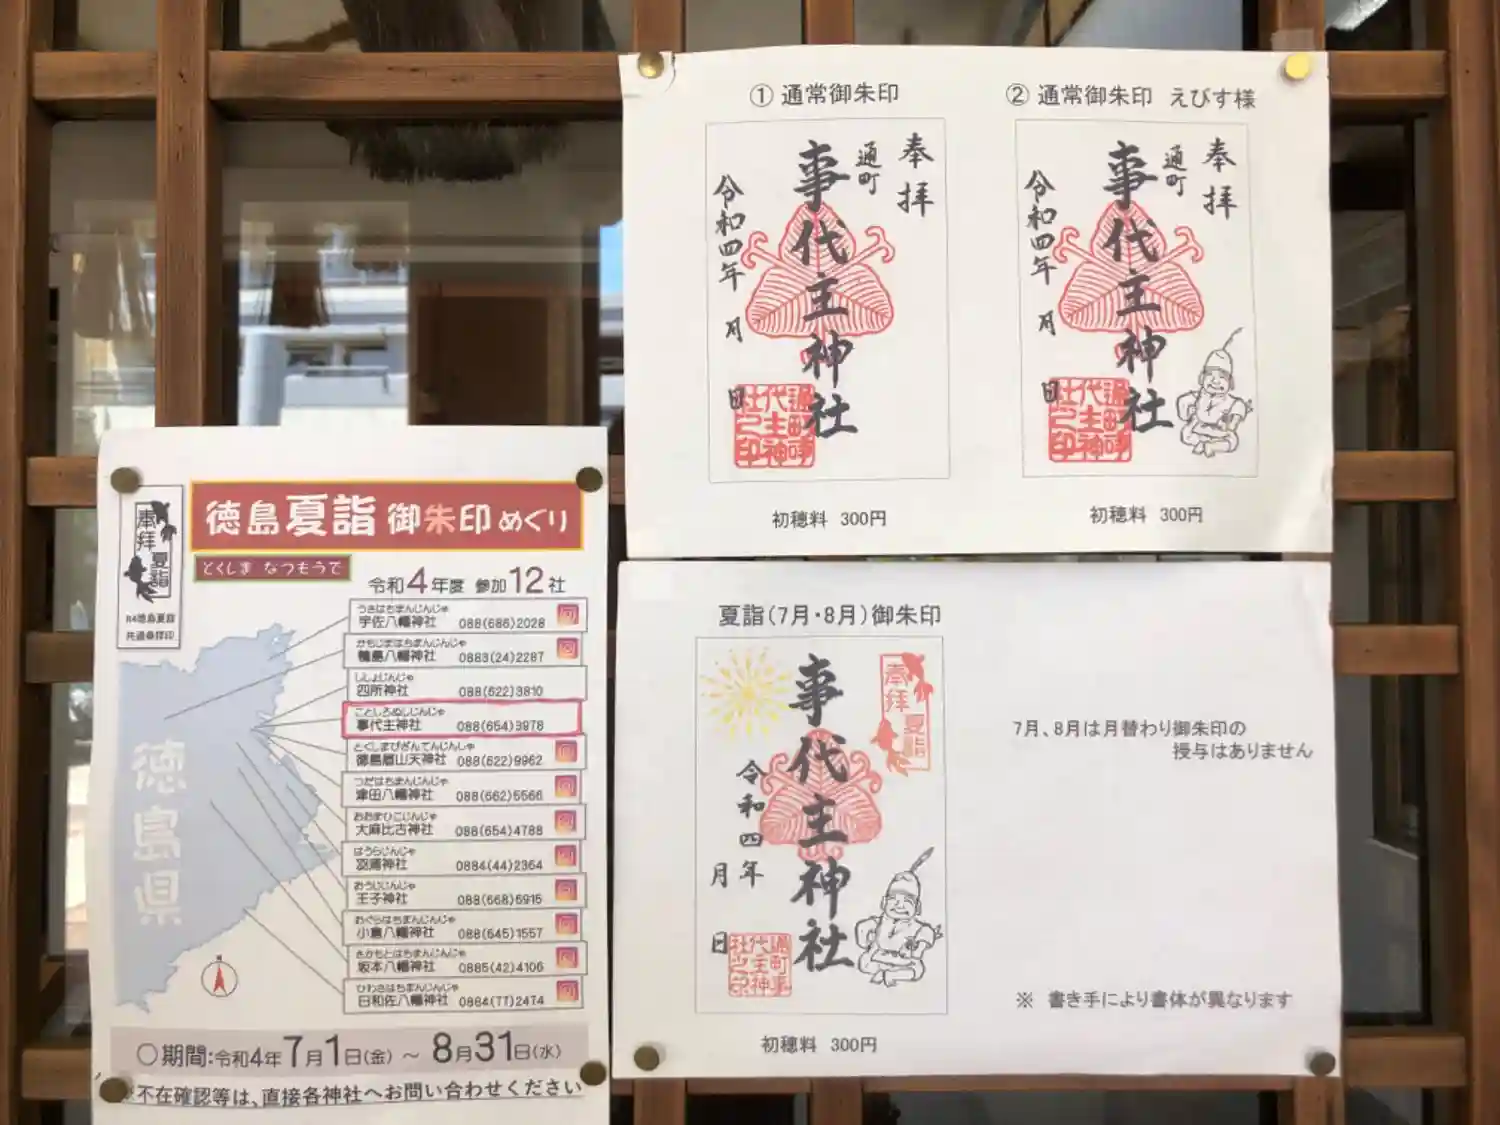 ① 通常御朱印
奉拝
通町
事代主神社
令和四年 月 日
初穂料 300円
② 通常御朱印 えびす様
奉拝
通町
事代主神社
令和四年 月 日
初穂料 300円
奉拝
夏詣
R4徳島夏詣
共通奉拝印
徳島夏詣 御朱印めぐり
とくしま なつもうで
令和4年度 参加12社
うさはちまんじんじゃ
宇佐八幡神社 088(686)2028
かもじまはちまんじんじゃ
鴨島八幡神社 0883(24)2287
ししょじんじゃ
四所神社 088(622)3810
ことしろぬしじんじゃ
事代主神社 088(654)3978
とくしまびざんてんじんしゃ
徳島眉山天神社 088(622)9962
つだはちまんじんじゃ
津田八幡神社 088(662)5566
おおまひこじんじゃ
大麻比古神社 088(654)4788
はうらじんじゃ
羽浦神社 0884(44)2364
おうじじんじゃ
王子神社 088(668)6915
おぐらはちまんじんじゃ
小倉八幡神社 088(645)1557
さかもとはちまんじんじゃ
坂本八幡神社 0885(42)4106
ひわさはちまんじんじゃ
日和佐八幡神社 0884(77)2474
徳島県
○期間:令和4年 7月1日(金) ～ 8月31日(水)
※不在確認等は、直接各神社へお問い合わせください
夏詣(7月・8月)御朱印
奉拝
夏詣
事代主神社
令和四年
月 日
初穂料 300円
7月、8月は月替わり御朱印の
授与はありません
※ 書き手により書体が異なります